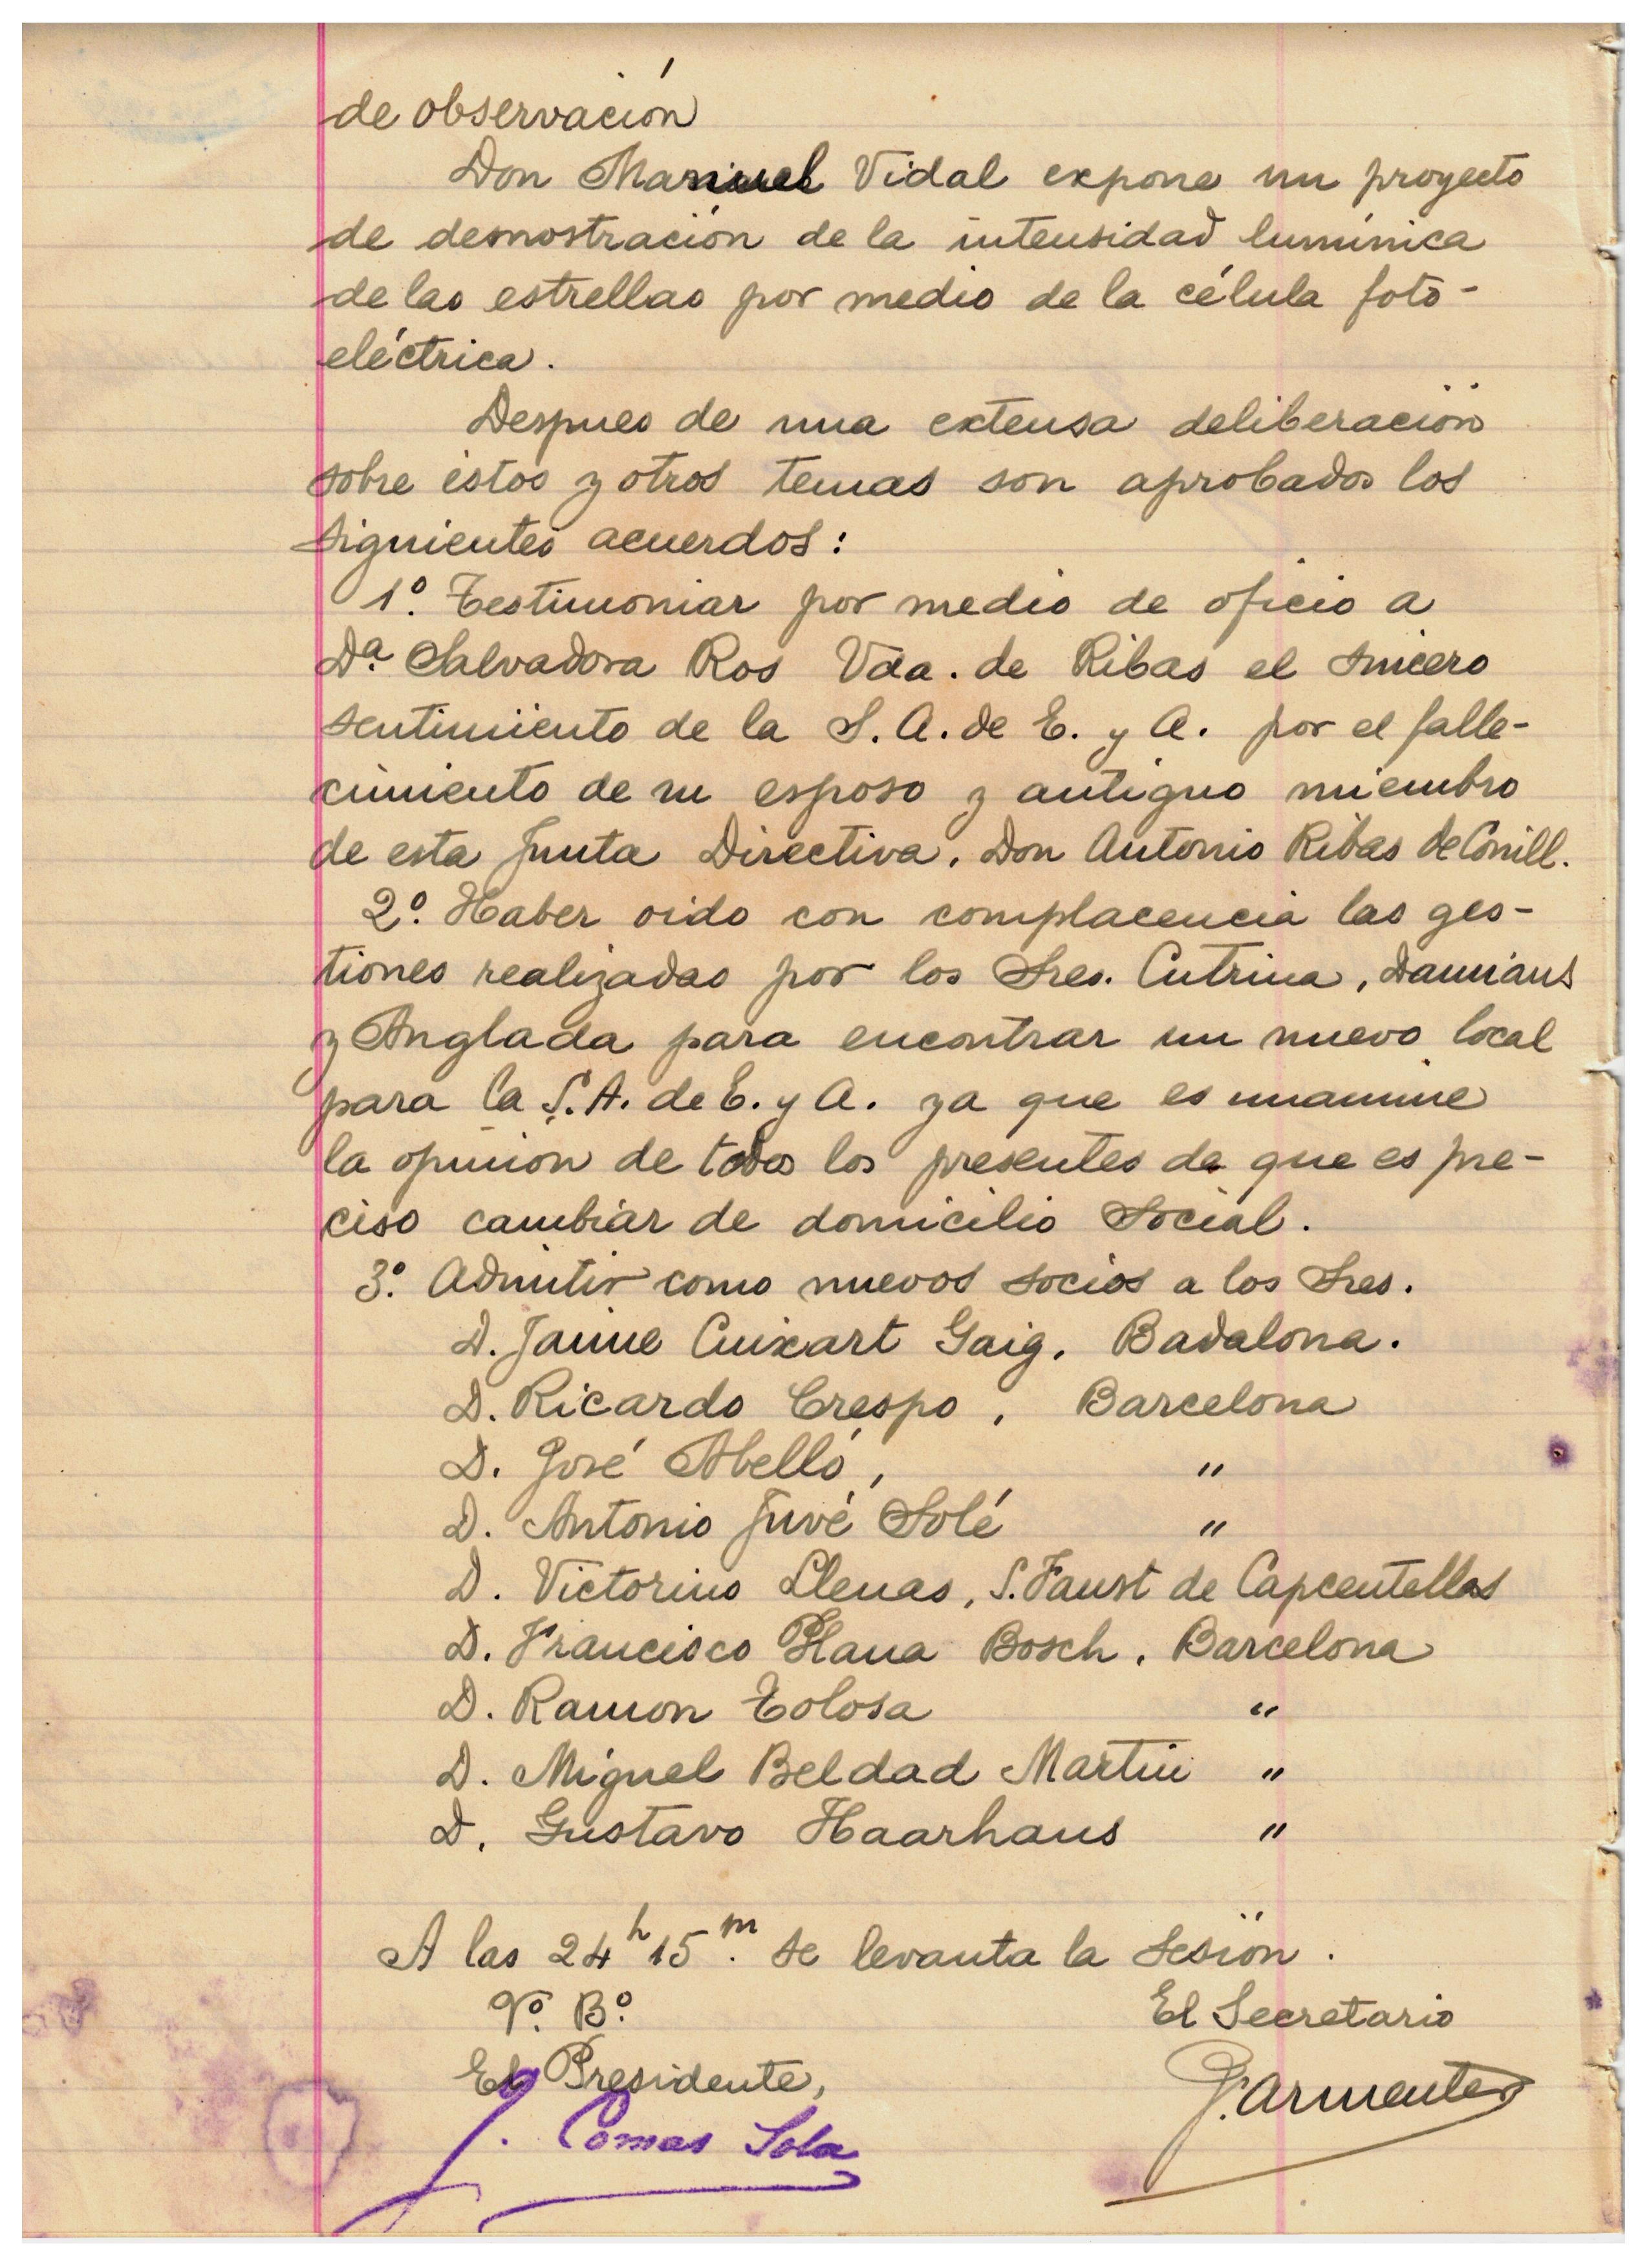 de observación
Don Manuel Vidal expone un proyecto
de demostración de la intensidad lumínica
de las estrellas por medio de la célula foto-
eléctrica.
Despues de una extensa deliberación
sobre éstos y otros temas son aprobados los
siguientes acuerdos:
1º. Testimoniar por medio de oficio a
Dª. Salvadora Ros Vda. de Ribas el sincero
sentimiento de la S. A. de E. y A. por el falle-
cimiento de su esposo y antiguo miembro
de esta Junta Directiva, Don Antonio Ribas de Conill.
2º. Haber oido con complacencia las ges-
tiones realizadas por los Sres. Cutrina, Damians
y Anglada para encontrar un nuevo local
para la S. A. de E. y A. ya que es unanime
la opinion de todos los presentes de que es pre-
ciso cambiar de domicilio social.
3º. Admitir como nuevos socios a los Sres.
D. Jaime Cuixart Gaig, Badalona.
D. Ricardo Crespo, Barcelona
D. José Abelló, "
D. Antonio Juvé Solé "
D. Victorino Llenas, S. Faust de Capcentellas
D. Francisco Plana Bosch, Barcelona
D. Ramon Tolosa "
D. Miguel Beldad Martín "
D. Gustavo Haarhaus "
A las 24h 15m. se levanta la sesión.
Vº. Bº. El Secretario
El Presidente, J. Armenter
J. Comas Solá